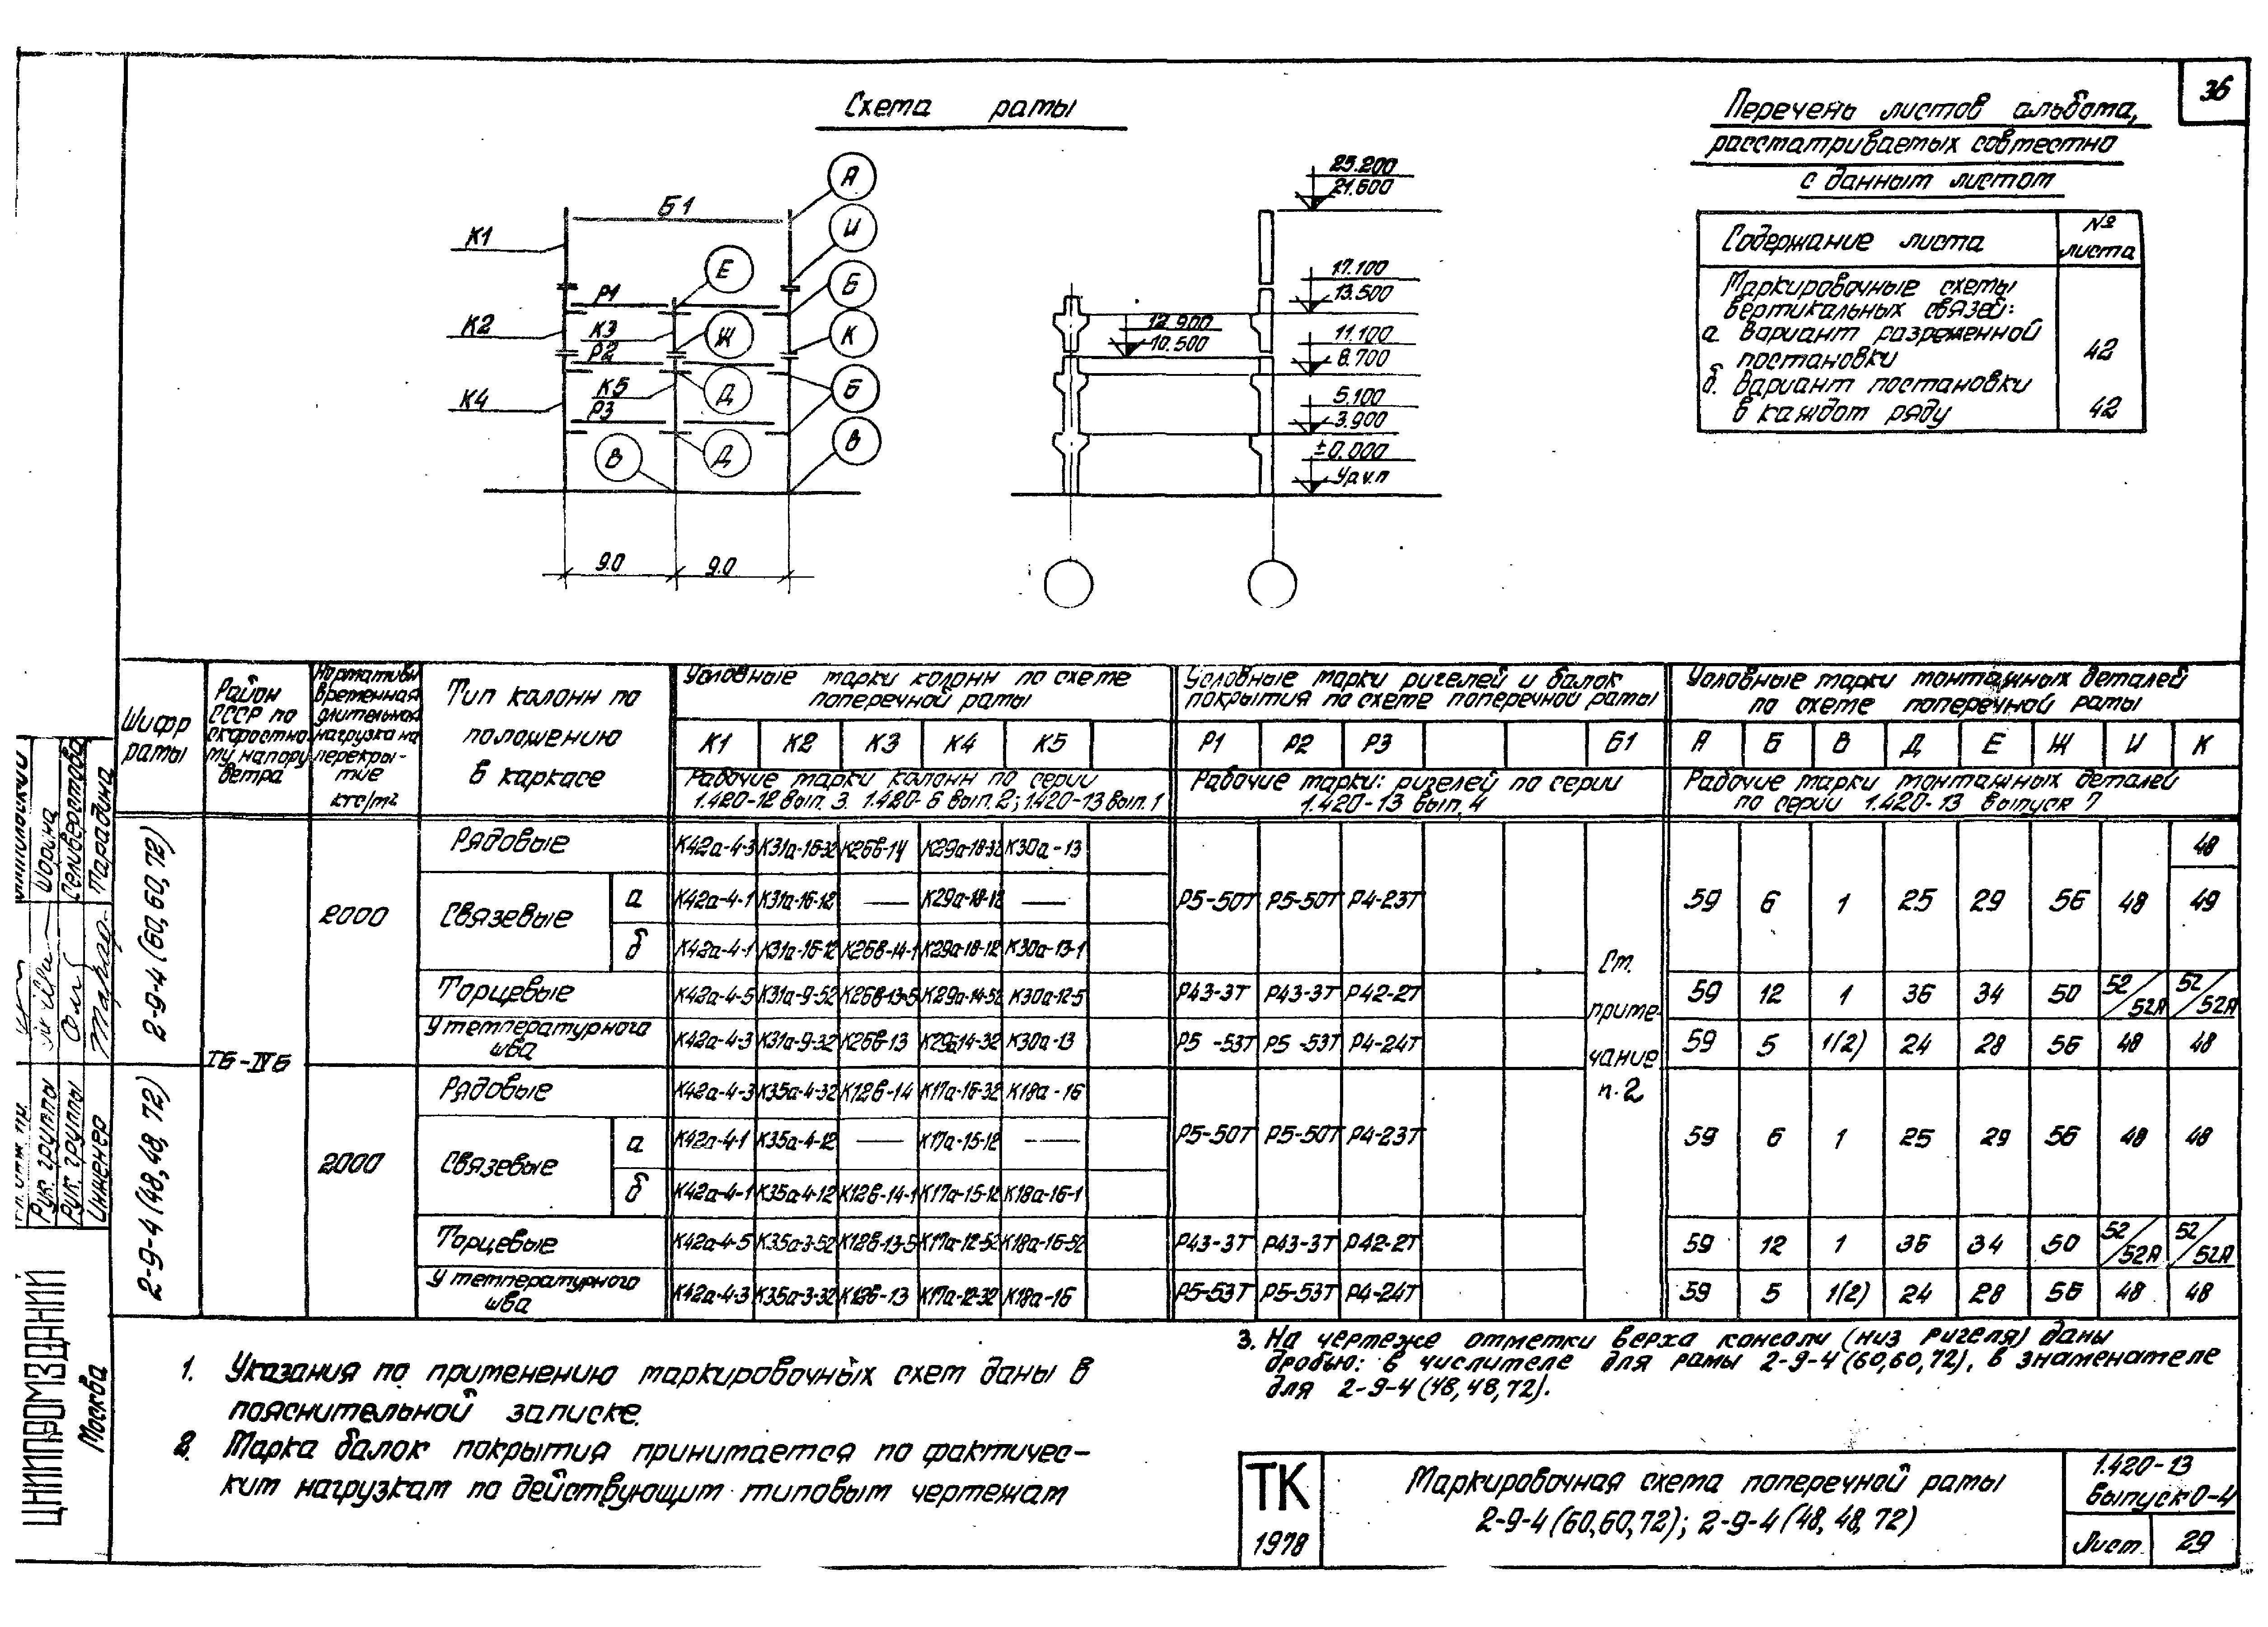 36
Схема рамы
Перечень листов альбома,
рассматриваемых совместно
с данным листом
Содержание листа
№ листа
Маркировочные схемы
вертикальных связей:
а. Вариант разреженной
постановки
42
б. Вариант постановки
в каждом ряду
42
Б1
К1
К2
К3
К4
К5
Р1
Р2
Р3
А
И
Е
Б
Ж
К
Д
Б
В
Д
В
9.0
9.0
25.200
21.600
17.100
13.500
12.900
10.500
11.100
8.700
5.100
3.900
±0.000
Ур.ч.п
Шифр рамы
Район СССР по скоростному напору ветра
Нормативн временная длительная нагрузка на перекрытие кгс/м²
Тип колонн по положению в каркасе
Условные марки колонн по схеме поперечной рамы
Условные марки ригелей и балок покрытия по схеме поперечной рамы
Условные марки монтажных деталей по схеме поперечной рамы
К1 К2 К3 К4 К5
Р1 Р2 Р3 Б1
А Б В Д Е Ж И К
Рабочие марки колонн по серии 1.420-12 вып. 3. 1.420-6 вып. 2; 1.420-13 вып. 1
Рабочие марки: ригелей по серии 1.420-13 вып. 4
Рабочие марки монтажных деталей по серии 1.420-13 выпуск 7
2-9-4 (60,60,72)
Iб-IVб
2000
Рядовые К42а-4-3 К31а-16-32 К26в-14 К29а-18-32 К30а-13 48
Связевые
а К42а-4-1 К31а-16-12 — К29а-18-12 — Р5-50Т Р5-50Т Р4-23Т 59 6 1 25 29 56 48 49
б К42а-4-1 К31а-16-12 К26в-14-1 К29а-18-12 К30а-13-1
Торцевые К42а-4-5 К31а-9-52 К26в-13-5 К29а-14-52 К30а-12-5 Р43-3Т Р43-3Т Р42-2Т 59 12 1 36 34 50 52/52А 52/52А
У температурного шва К42а-4-3 К31а-9-32 К26в-13 К29а-14-32 К30а-13 Р5-53Т Р5-53Т Р4-24Т 59 5 1(2) 24 28 56 48 48
См. примечание п.2
2-9-4 (48,48,72)
2000
Рядовые К42а-4-3 К35а-4-32 К12в-14 К17а-16-32 К18а-16
Связевые
а К42а-4-1 К35а-4-12 — К17а-15-12 — Р5-50Т Р5-50Т Р4-23Т 59 6 1 25 29 56 48 48
б К42а-4-1 К35а-4-12 К12в-14-1 К17а-15-12 К18а-16-1
Торцевые К42а-4-5 К35а-3-52 К12в-13-5 К17а-12-52 К18а-16-52 Р43-3Т Р43-3Т Р42-2Т 59 12 1 36 34 50 52/52А 52/52А
У температурного шва К42а-4-3 К35а-3-32 К12в-13 К17а-12-32 К18а-16 Р5-53Т Р5-53Т Р4-24Т 59 5 1(2) 24 28 56 48 48
1. Указания по применению маркировочных схем даны в
пояснительной записке.
2. Марка балок покрытия принимается по фактичес-
ким нагрузкам по действующим типовым чертежам
3. На чертеже отметки верха консоли (низ ригеля) даны
дробью: в числителе для рамы 2-9-4 (60,60,72), в знаменателе
для 2-9-4 (48,48,72).
ТК
1978
Маркировочная схема поперечной рамы
2-9-4 (60,60,72); 2-9-4 (48,48,72)
1.420-13
Выпуск 0-4
Лист 29
Рук. группы Шорина
Рук. группы Селиверстова
Инженер Парадина
ЦНИИПРОМЗДАНИЙ
Москва